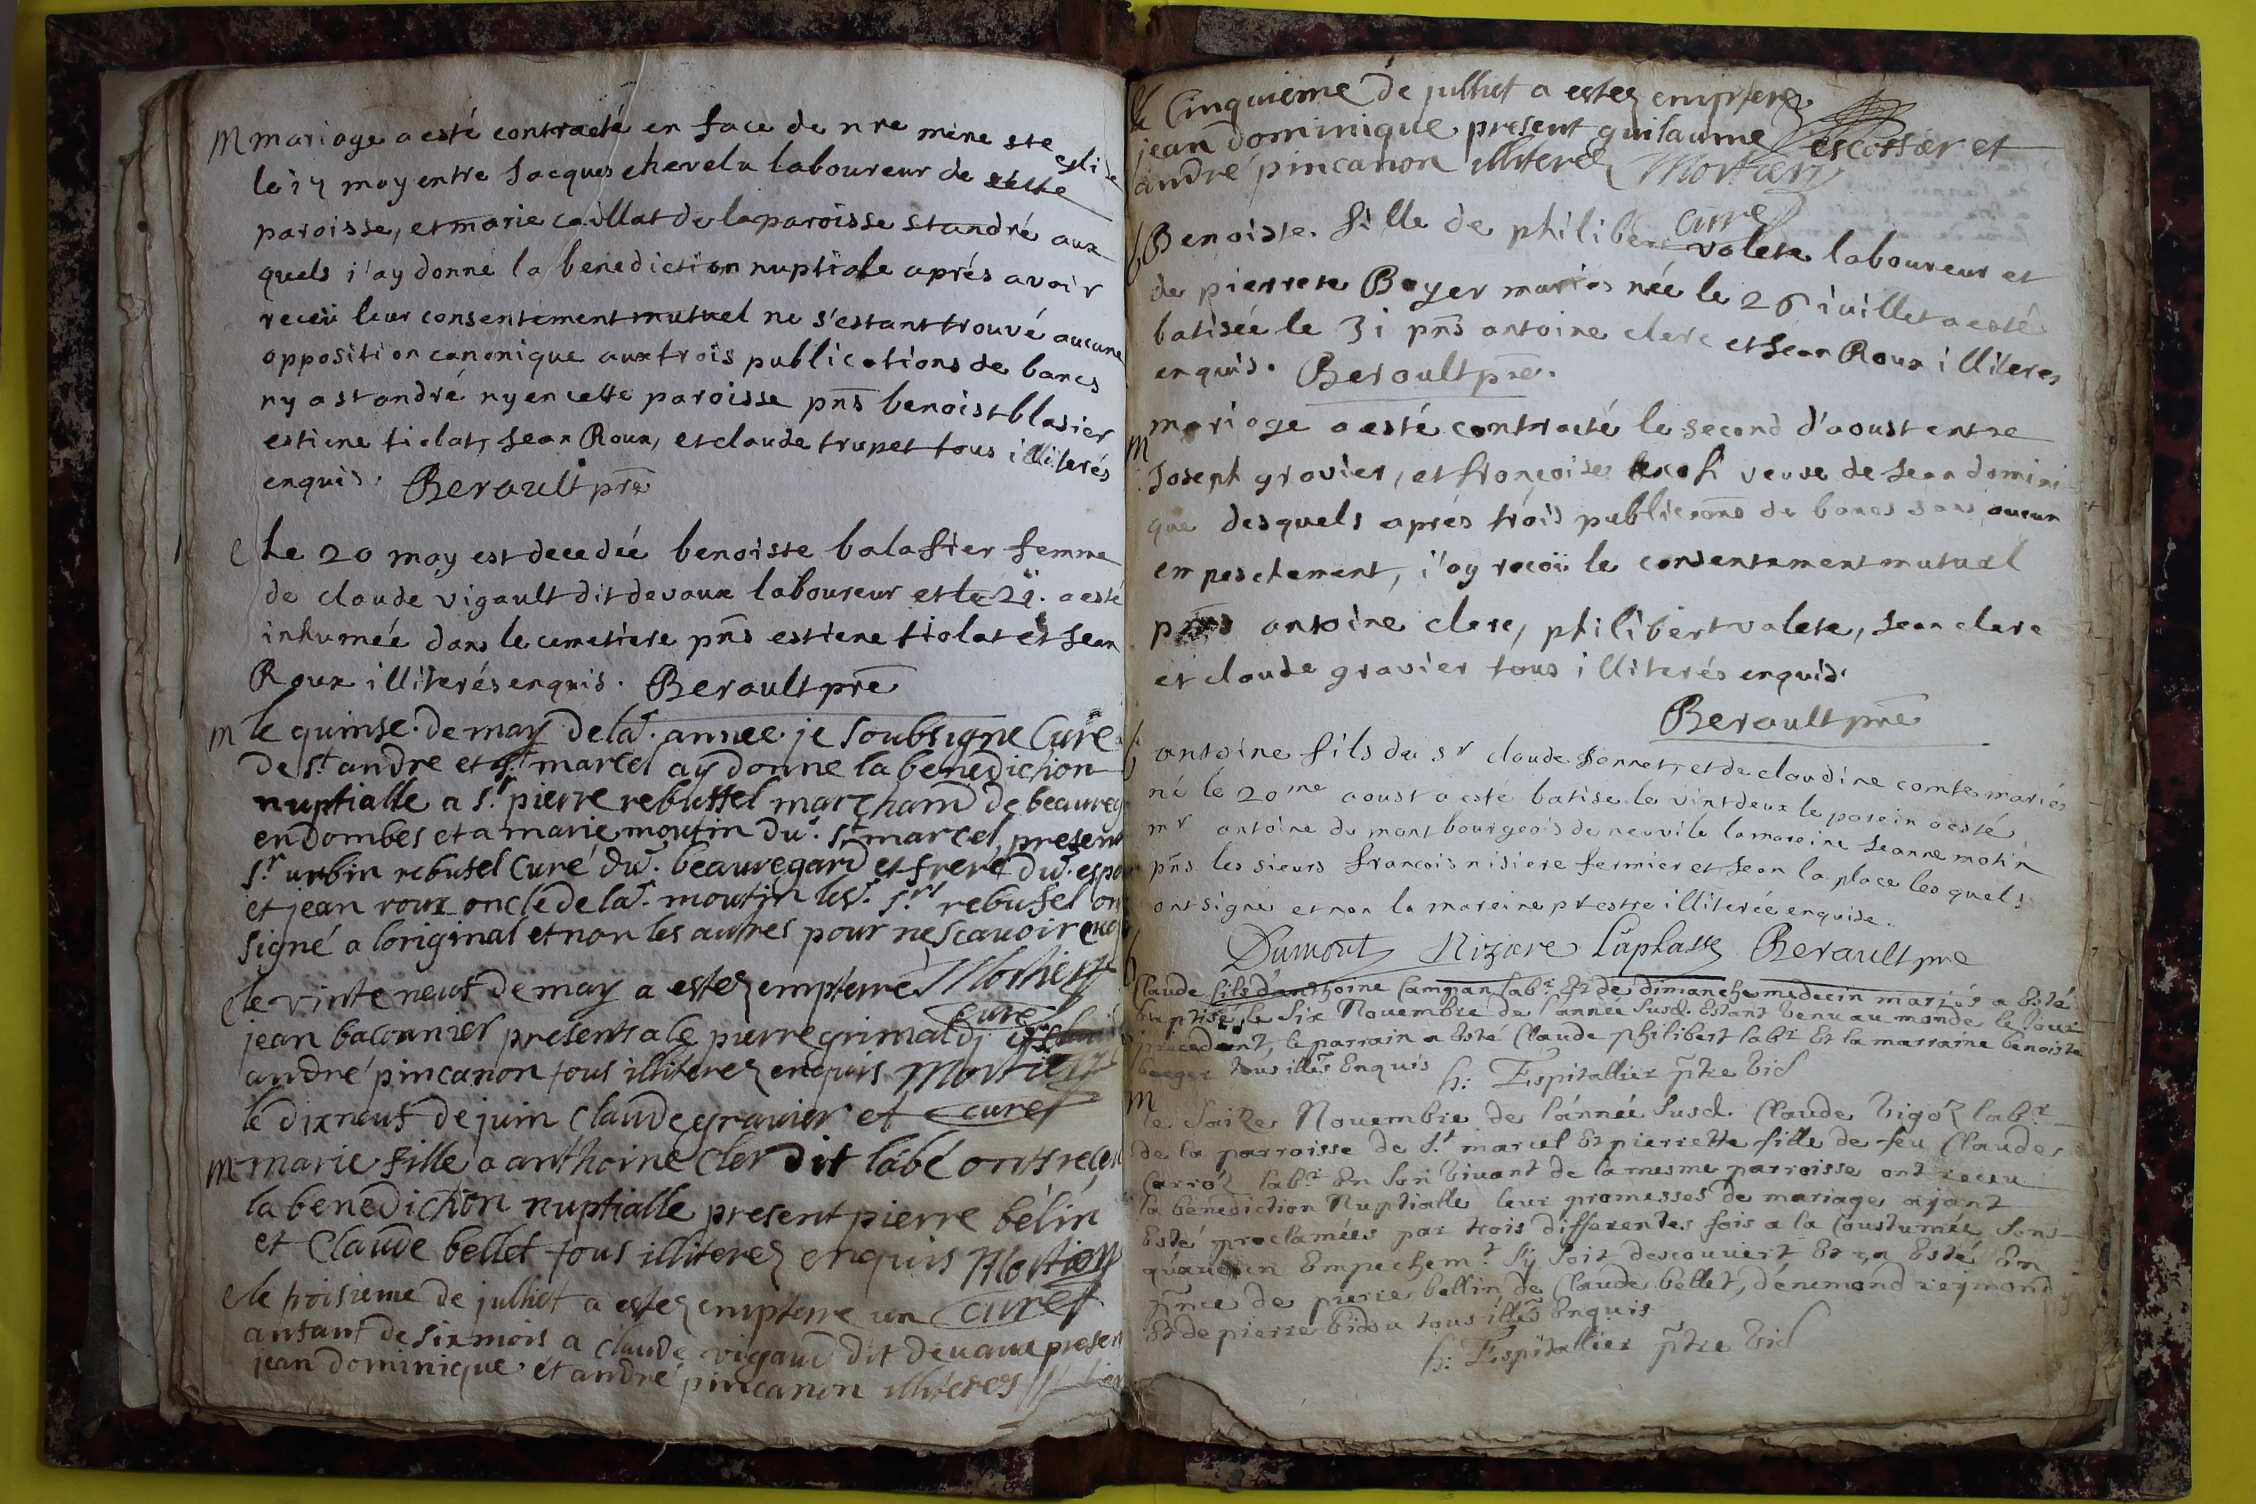 M mariage a esté contracté en face de nre mere ste eglise
le 17 may entre Jacques chevelu laboureur de cette
paroisse, et marie caillat de la paroisse st andré aux
quels i'ay donné la benediction nuptiale aprés avoir
receü leur consentement mutuel ne s'estant trouvé aucune
opposition canonique aux trois publications de bancs
ny a st andré ny en cette paroisse pns benoist blasier
estiene tiolat, Jean Roux, et claude trupet tous illiterés
enquis. Berault pre
Le 20 may est decedée benoiste balasier femme
de claude vigault dit devaux laboureur et le 21. a esté
inhumée dans le cemetiere pns estiene tiolat et Jean
Roux illiterés enquis. Berault pre
M le quinse de may de lad. annee je soubsigne Curé
de st. andre et st. marcel ay donne la benediction
nuptialle a sr. pierre rebuffel marchand de beaureg
en dombes et a marie moutin dud. st marcel, present
sr. urbin rebufel Curé dud. beauregard et frere dud. espou
et jean roux oncle de lad. moutin lesd. srs rebufel on
signé a loriginal et non les autres pour ne scavoir enq
C le vinte neuf de may a estez empterré Mortier
curé
jean baconnier presents a le pierre grimaldj
andré pincanon tous illiterez enquis Mortier
curé
le dixneuf de juin Claude gravier et
M marie fille a anthoine Cler dit labé onts receu
la benediction nuptialle present pierre bélin
et Claude bellet tous illiterez enquis Mortier
curé
C le troisieme de julhet a estez empterre un
anfant de six mois a Claude vigaud dit devaux present
jean dominique et andré pincanon illiterez
le Cinquiéme de julhet a estez empterez
jean dominique present guilaume escoffier et
andré pincanon illiterez Mortier
curé
b Benoiste fille de philibert valete laboureur et
de pierrete Boyer mariés née le 26 iuillet a esté
batisée le 31 pns antoine clerc et Jean Roux illiteres
enquis. Berault pre.
M
mariage a esté contracté le second d'aoust entre
Joseph gravier, et françoise veuve de Jean domini
que desquels aprés trois publicaons de bancs sans aucun
empeschement, i'ay receü le consentement mutuel
pns antoine clerc, philibert valete, Jean clerc
et claude gravier tous illiterés enquis.
Berault pre
b antoine fils du sr claude Sonnet, et de claudine comte mariés
né le 20me aoust a esté batisé le vint deux le parein a esté
mr antoine du mont bourgeois de neuvile la mareine Jeanne matin
pns les sieurs françois nisiere fermier et Jean la place lesquels
ont signé et non la mareine pr estre illiterée enquise.
Dumont Nizere Laplasse Berault pre
b Claude fils d'anthoine Campan labr. Et de dimanche medecin mariés a Esté
baptisé, le six Novembre de l'année susd. Estant venu au monde le Jour
precedent, le parrain a Esté Claude philibert labr Et la marraine benoiste
berger tous illés Enquis h: Espitallier ptre vic
M
le saize Novembre de l'année susd. Claude vigoz labr.
de la parroisse de St. marcel Et pierrette fille de feu Claude
Carroz labr. En son vivant de la mesme parroisse ont receu
la bénédiction Nuptialle leur promesses de mariage ayant
Esté proclamées par trois differentes fois a la Coustumée sans
qu'aucun Empechemt. s'y soit descouvert Et ça Esté En
pnce de pierre bellin, de Claude bellet, dénemond reymond
Et de pierre bidou tous illés Enquis
h: Espitallier ptre vic